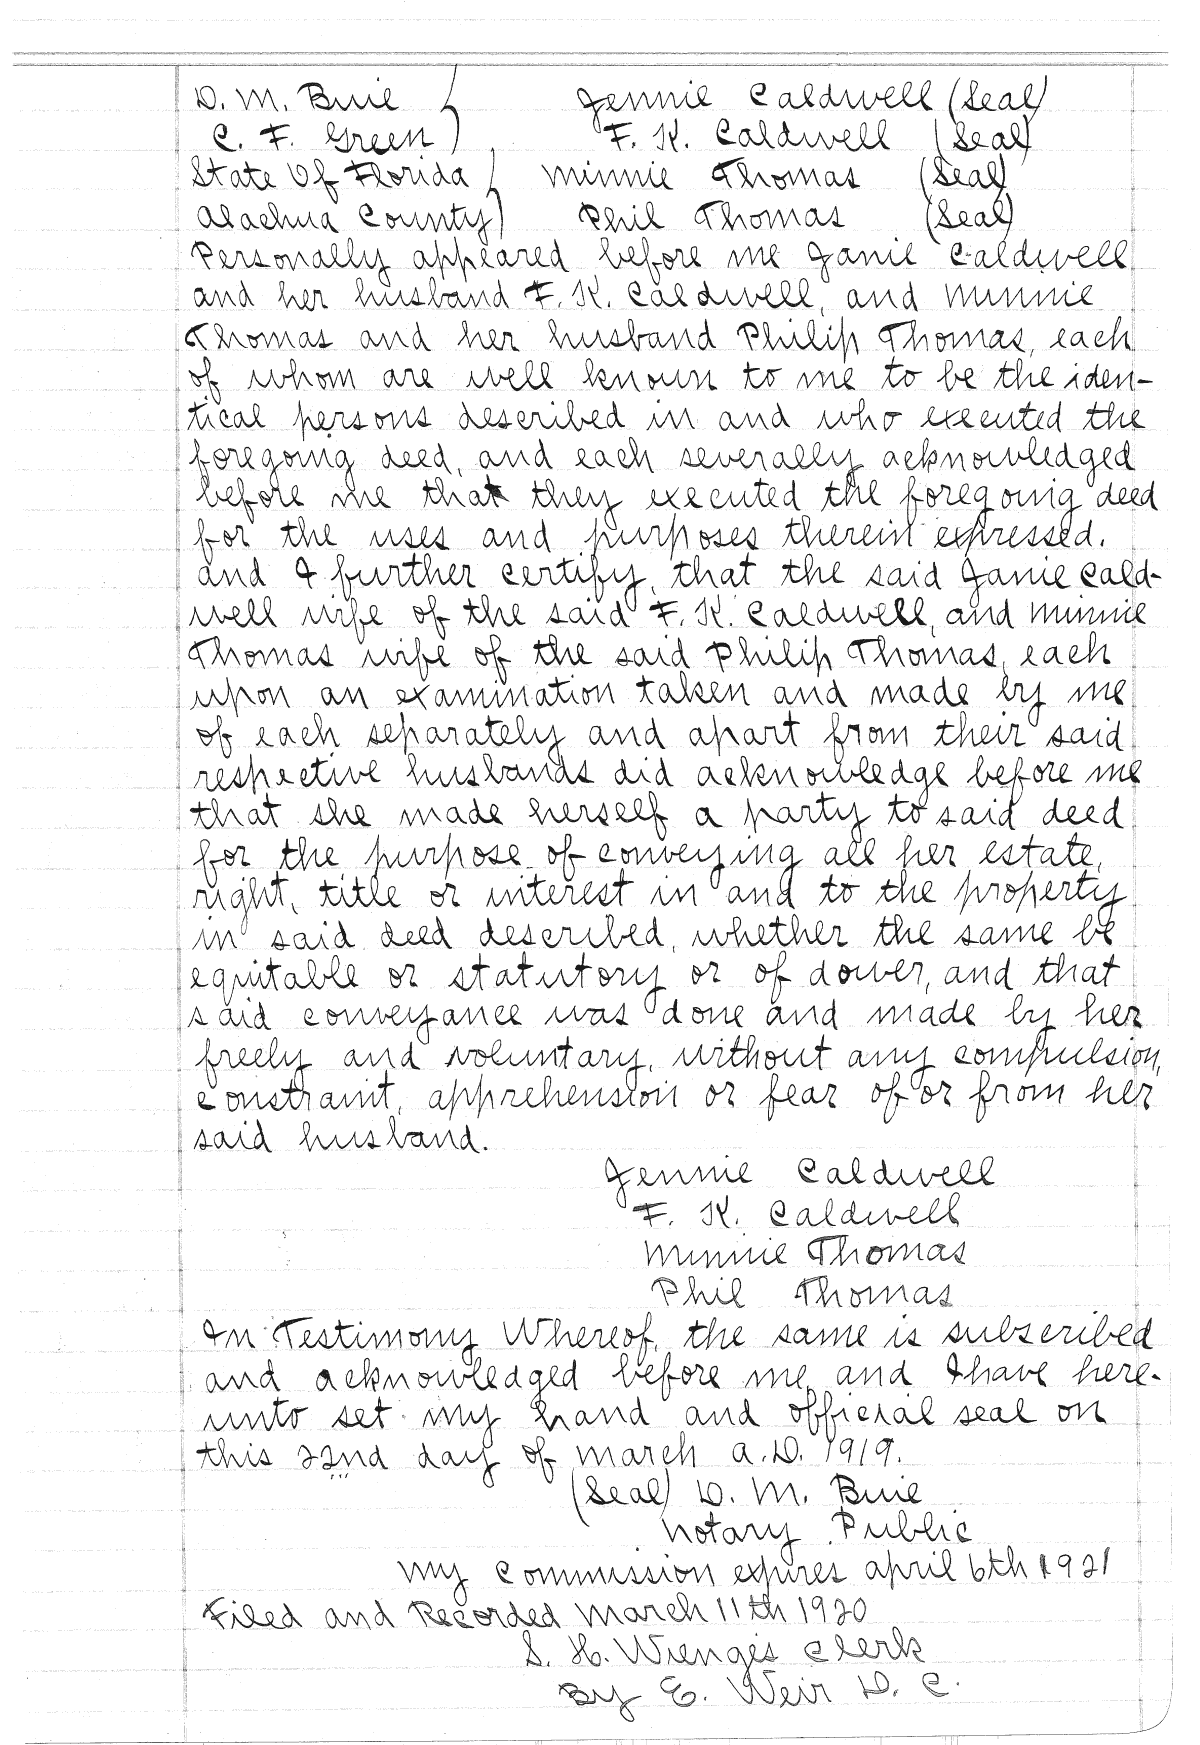 D. M. Buie ) Jennie Caldwell (Seal)
C. F. Green ) F. K. Caldwell (Seal)
State Of Florida ) Minnie Thomas (Seal)
Alachua County ) Phil Thomas (Seal)
Personally appeared before me Janie Caldwell
and her husband F. K. Caldwell, and Minnie
Thomas and her husband Philip Thomas, each
of whom are well known to me to be the iden-
tical persons described in and who executed the
foregoing deed, and each severally acknowledged
before me that they executed the foregoing deed
for the uses and purposes therein expressed.
and I further certify, that the said Janie Cald-
well wife of the said F. K. Caldwell, and Minnie
Thomas wife of the said Philip Thomas, each
upon an examination taken and made by me
of each separately and apart from their said
respective husbands did acknowledge before me
that she made herself a party to said deed
for the purpose of conveying all her estate,
right, title or interest in and to the property
in said deed described, whether the same be
equitable or statutory or of dower, and that
said conveyance was done and made by her
freely and voluntary, without any compulsion,
constraint, apprehension or fear of or from her
said husband.
Jennie Caldwell
F. K. Caldwell
Minnie Thomas
Phil Thomas
In Testimony Whereof, the same is subscribed
and acknowledged before me, and I have here-
unto set my hand and official seal on
this 22nd day of March A.D. 1919.
(Seal) D. M. Buie
Notary Public
My Commission expires April 6th 1921
Filed and Recorded March 11th 1920
S. H. Wienges Clerk
By E. Weir D. C.